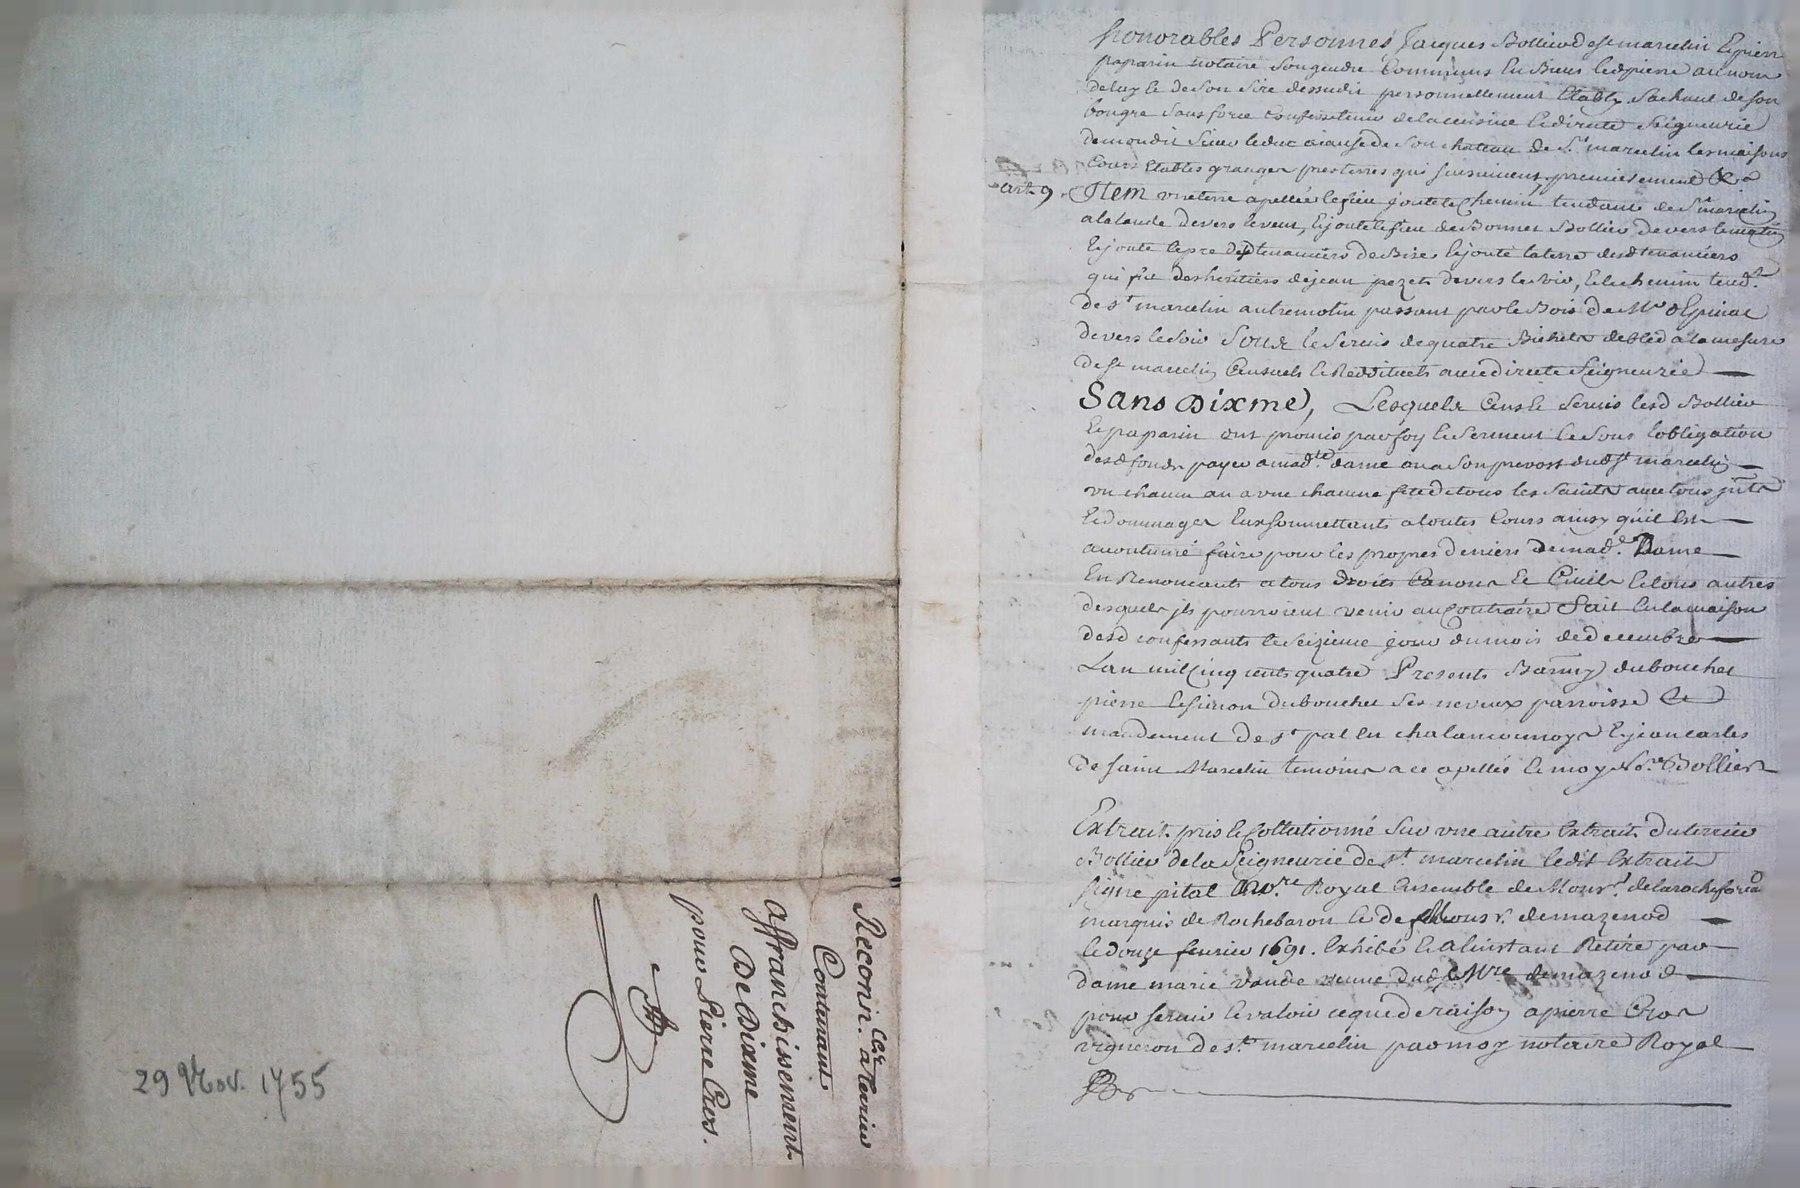 honorables Personnes Jacques Bollieu de st marcelin Et pierre
paparin notaire son gendre Communs En Biens led pierre au nom
de luy Et de son sire dessudit personnellement Etably Sachant de son
bongre sans force Confesse tenir de la censive Et directe Seigneurie
de mondit Sieur le duc a cause de son chateau de St marcelin les maisons
Cours Etables granges pres terres qui suivent premierement &a
art. 9. Item vne terre apellée le fieu joute le Chemin tendant de St marcelin
a la lande devers le vent, Et joute le fieu de Bonnet Bollieu devers le matin
Et joute le pre desd tenanciers de Bise Et joute la terre desd tenanciers
qui fut des heritiers de jean pezet devers le soir, Et le chemin tend.t
de st marcelin autremolin passant par le Bois de Mr d'Epinac
devers le soir Sous le Servis de quatre Bichets de bled a la mesure
de st marcelin Censuels Et Reddituels avec directe Seigneurie
Sans Dixme, Lesquels Cens Et Servis lesd Bollieu
Et paparin ont promis par foy Et Serment Et sous l'obligation
desd fonds payer a mad.te dame ou a son prevost dud st marcelin
vn chacun an a vne chacune fete de tous les Saints avec tous
Et dommages Eux soumettants a toutes Cours ainsy qu'il Est
acoutumé faire pour les propres deniers de mad.e Dame
En Renonceants a tous droits Canons Et Civils Et tous autres
desquels jls pourroient venir au Contraire Fait En la maison
desd confessants le Seizieme jour du mois de decembre
L'an mil cinq cents quatre Presents Bartmy dubouchet
pierre Et simon dubouchet ses neveux parroisse Et
mandement de st pal En chalanconnoys Et jean carles
de saint Marcelin temoins a ce apellés Et moy No.re Bollier
Extrait pris Et Collationné Sur vne autre Extrait du terrier
Bollieu de la Seigneurie de st. marcelin ledit Extrait
signe pitol No.re Royal Ensemble de Monsr. de la rochefoucaud
marquis de Rochebaron Et de Monsr. demazenod
le douze fevrier 1691. Exhibé Et a l'instant Retiré par
dame marie vande veuve dud Mre demazenod
pour servir Et valoir ce que de raison a pierre Cros
vigneron de st. marcelin par moy notaire Royal
Reconn.ce a terrier
Contenant
affranchissement
De Dixme
pour Pierre Cros.
29 Nov. 1755